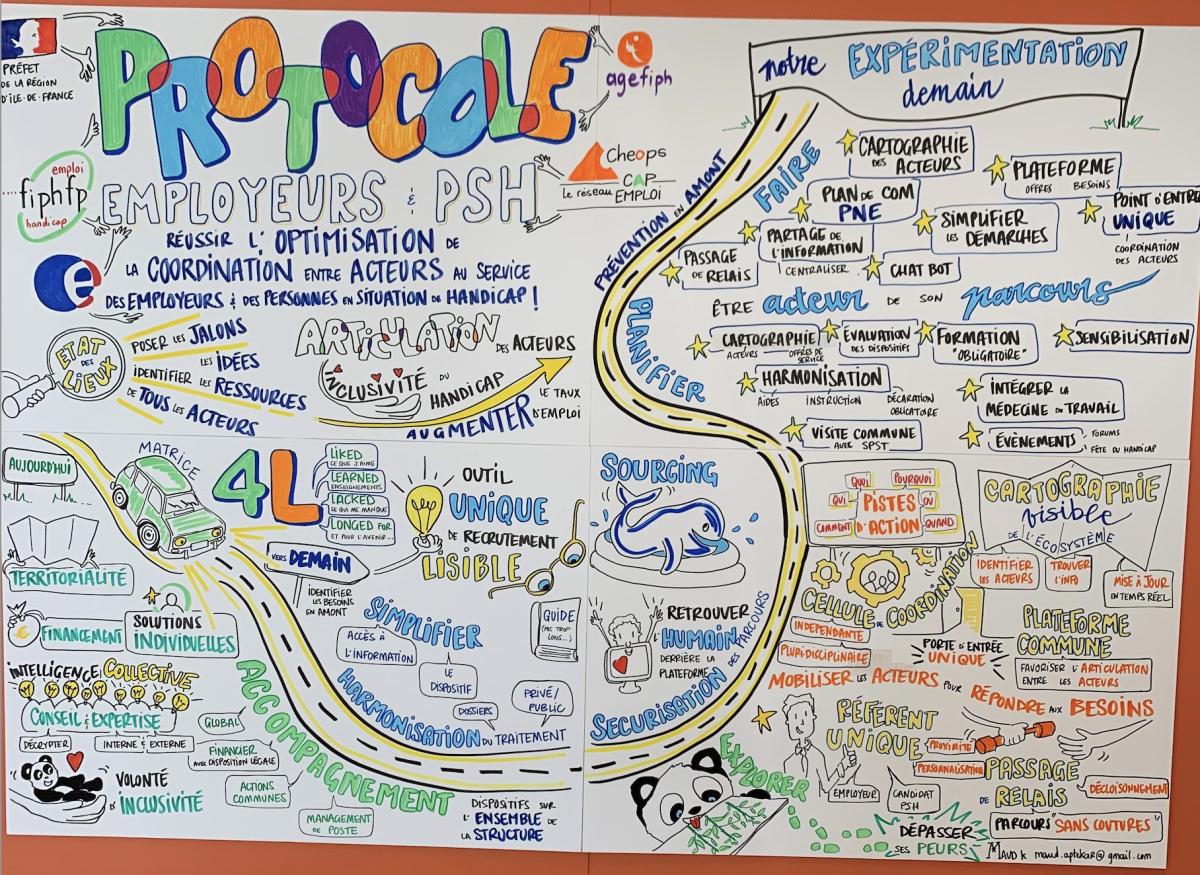 PRÉFET
DE LA RÉGION
D'ÎLE-DE-FRANCE
PROTOCOLE
agefiph
emploi
fiphfp
handicap
Cheops
CAP
Le réseau EMPLOI
EMPLOYEURS & PSH
RÉUSSIR L'OPTIMISATION DE
LA COORDINATION ENTRE ACTEURS AU SERVICE
DES EMPLOYEURS & DES PERSONNES EN SITUATION DE HANDICAP !
ETAT
DES
LIEUX
POSER LES JALONS
LES IDÉES
IDENTIFIER LES RESSOURCES
DE TOUS LES ACTEURS
ARTICULATION
DES ACTEURS
INCLUSIVITÉ DU
HANDICAP
AUGMENTER
LE TAUX
D'EMPLOI
notre EXPÉRIMENTATION
demain
PRÉVENTION EN AMONT
FAIRE
CARTOGRAPHIE
DES ACTEURS
PLATEFORME
OFFRES BESOINS
PLAN DE COM
PNE
POINT D'ENTRE
UNIQUE
COORDINATION
DES ACTEURS
SIMPLIFIER
LES DÉMARCHES
PARTAGE DE
L'INFORMATION
CENTRALISER
PASSAGE
DE RELAIS
CHAT BOT
ÊTRE acteur DE SON parcours
PLANIFIER
CARTOGRAPHIE
ACTEURS
OFFRES DE
SERVICE
ÉVALUATION
DES DISPOSITIFS
FORMATION
"OBLIGATOIRE"
SENSIBILISATION
HARMONISATION
AIDES
INSTRUCTION
DÉCLARATION
OBLIGATOIRE
INTÉGRER LA
MÉDECINE DU TRAVAIL
VISITE COMMUNE
AVEC SPST
ÉVÈNEMENTS
FORUMS
FÊTE DU HANDICAP
AUJOURD'HUI
MATRICE
4L
LIKED
CE QUE J'AIME
LEARNED
ENSEIGNEMENTS
LACKED
CE QUI ME MANQUE
LONGED FOR
ET POUR L'AVENIR...
VERS DEMAIN
IDENTIFIER
LES BESOINS
EN AMONT
OUTIL
UNIQUE
DE RECRUTEMENT
LISIBLE
TERRITORIALITÉ
FINANCEMENT
SOLUTIONS
INDIVIDUELLES
INTELLIGENCE COLLECTIVE
CONSEIL & EXPERTISE
DÉCRYPTER
INTERNE & EXTERNE
VOLONTÉ
D'INCLUSIVITÉ
ACCOMPAGNEMENT
GLOBAL
FINANCIER
AVEC DISPOSITION LÉGALE
ACTIONS
COMMUNES
MANAGEMENT
DE POSTE
SIMPLIFIER
ACCÈS À
L'INFORMATION
LE
DISPOSITIF
GUIDE
(PAS TROP
LONG...)
HARMONISATION DU TRAITEMENT
DOSSIERS
PRIVÉ/
PUBLIC
DISPOSITIFS SUR
L'ENSEMBLE DE
LA STRUCTURE
SOURCING
RETROUVER
L'HUMAIN
DERRIÈRE LA
PLATEFORME
SECURISATION DES PARCOURS
EXPLORER
QUOI
POURQUOI
QUI
PISTES
OÙ
COMMENT
D'ACTION
QUAND
CARTOGRAPHIE
visible
DE L'ÉCOSYSTÈME
IDENTIFIER
LES ACTEURS
TROUVER
L'INFO
MISE À JOUR
EN TEMPS RÉEL
CELLULE DE COORDINATION
INDEPENDANTE
PLURIDISCIPLINAIRE
PORTE D'ENTRÉE
UNIQUE
PLATEFORME
COMMUNE
FAVORISER L'ARTICULATION
ENTRE LES ACTEURS
MOBILISER LES ACTEURS POUR RÉPONDRE AUX BESOINS
RÉFÉRENT
UNIQUE
PROXIMITÉ
PERSONNALISATION
EMPLOYEUR
CANDIDAT
PSH
PASSAGE
DE RELAIS
DÉCLOISONNEMENT
PARCOURS "SANS COUTURES"
DÉPASSER
SES PEURS
MAUD K maud.aptekar@gmail.com